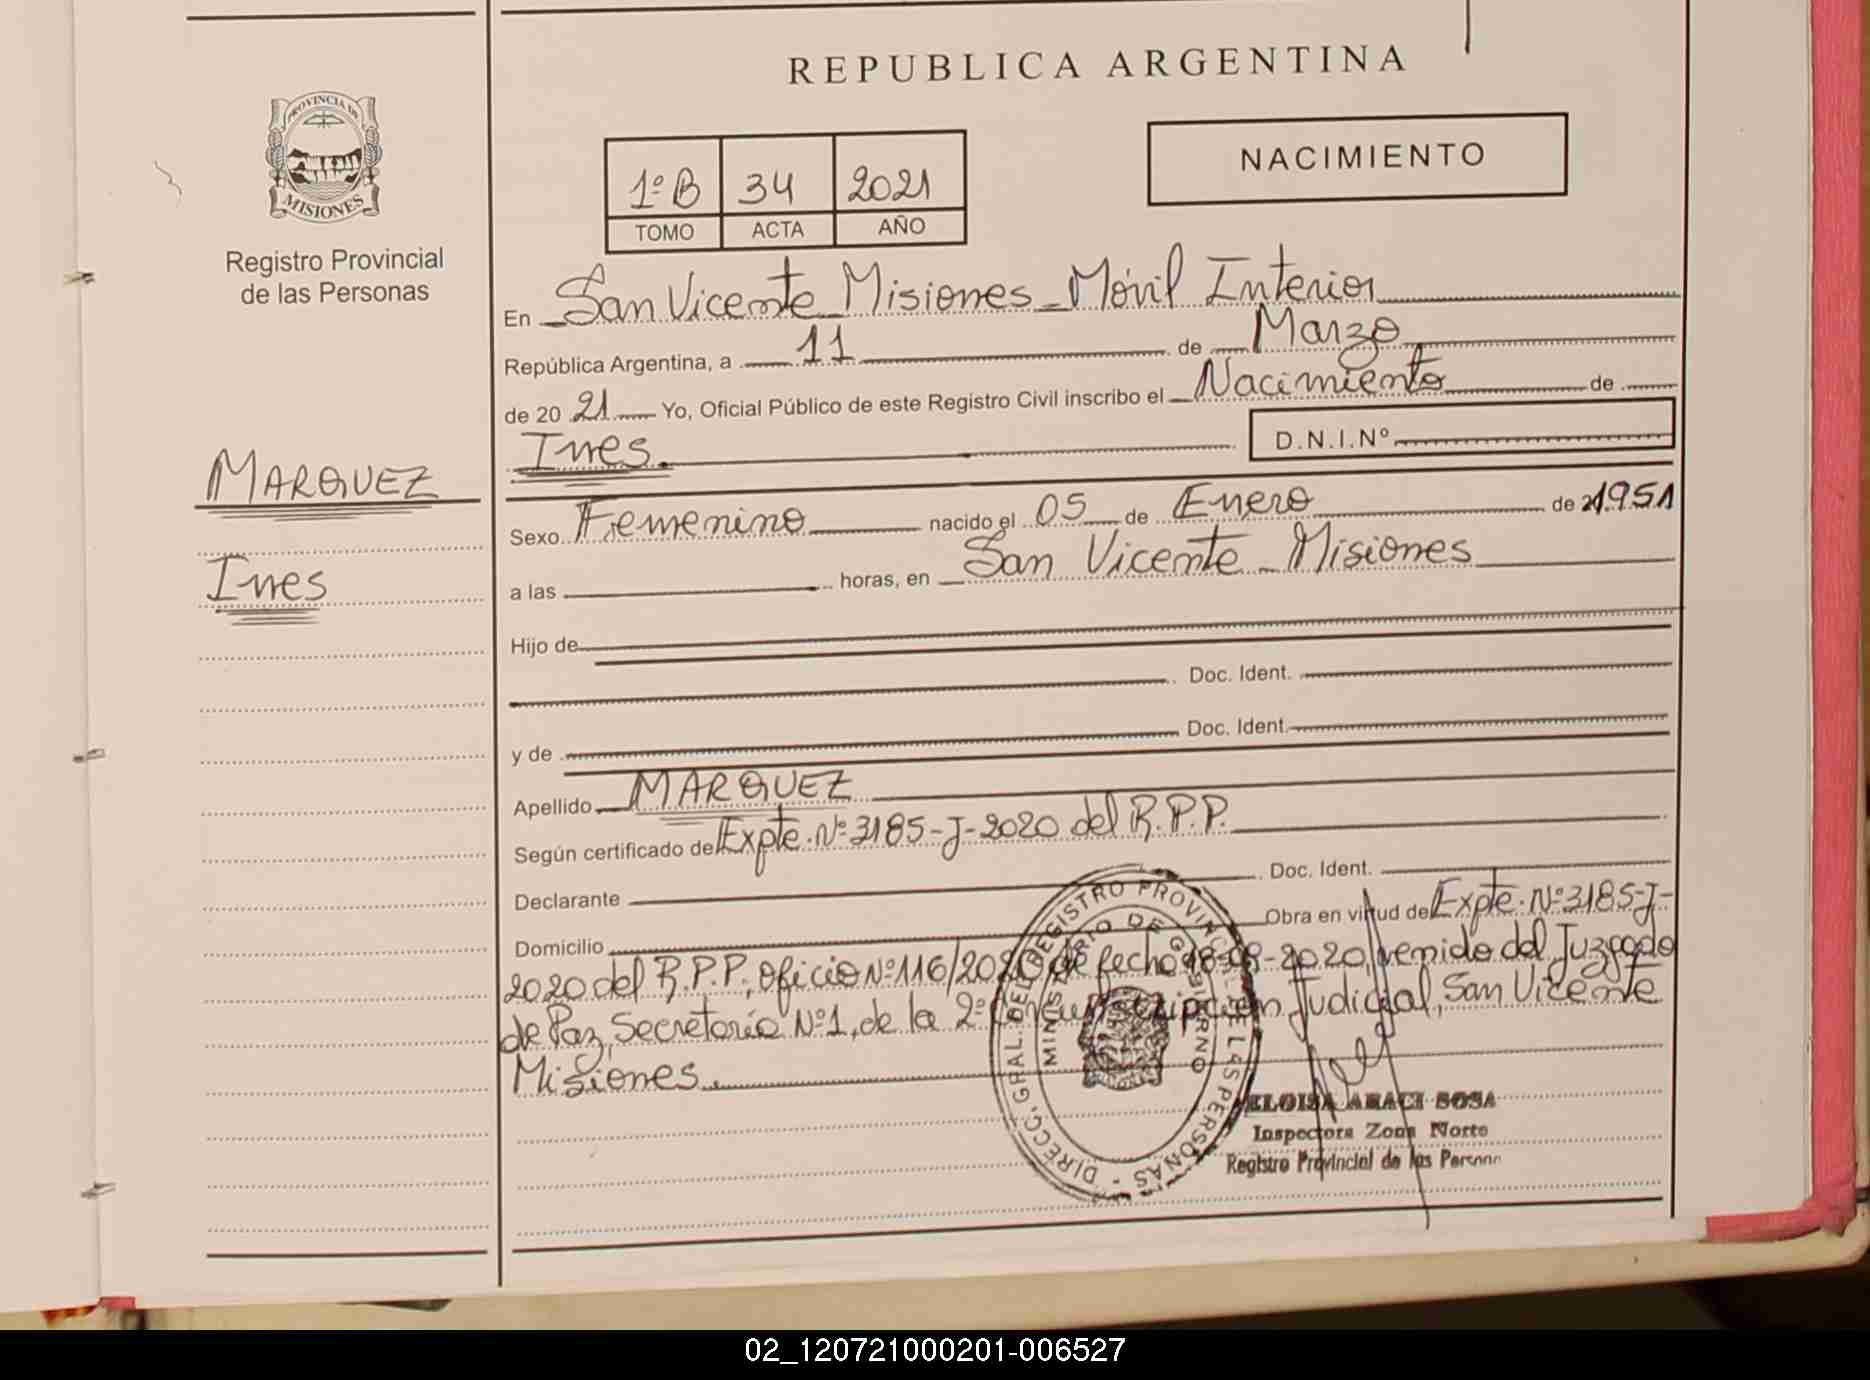 REPUBLICA ARGENTINA
PROVINCIA DE
MISIONES
Registro Provincial
de las Personas
NACIMIENTO
1º B 34 2021
TOMO ACTA AÑO
En San Vicente Misiones Móvil Interior
República Argentina, a 11 de Marzo
de 20 21 Yo, Oficial Público de este Registro Civil inscribo el Nacimiento de
Ines D.N.I.Nº
MARQUEZ
Ines
Sexo Femenino nacido el 05 de Enero de 1951
a las horas, en San Vicente - Misiones
Hijo de
Doc. Ident.
y de Doc. Ident.
Apellido MARQUEZ
Según certificado de Expte. Nº 3185-J-2020 del R.P.P.
Declarante Doc. Ident.
Domicilio Obra en virtud de Expte. Nº 3185-J-
2020 del R.P.P., Oficio Nº 116/2020 de fecha -2020, venido del Juzgado
de Paz, Secretaría Nº 1, de la 2º Circunscripción Judicial, San Vicente
Misiones.
DIRECC. GRAL. DEL REGISTRO PROVINCIAL DE LAS PERSONAS -
MINISTERIO DE GOBIERNO
ELOISA ARACI SOSA
Inspectora Zona Norte
Registro Provincial de las Personas
02_120721000201-006527